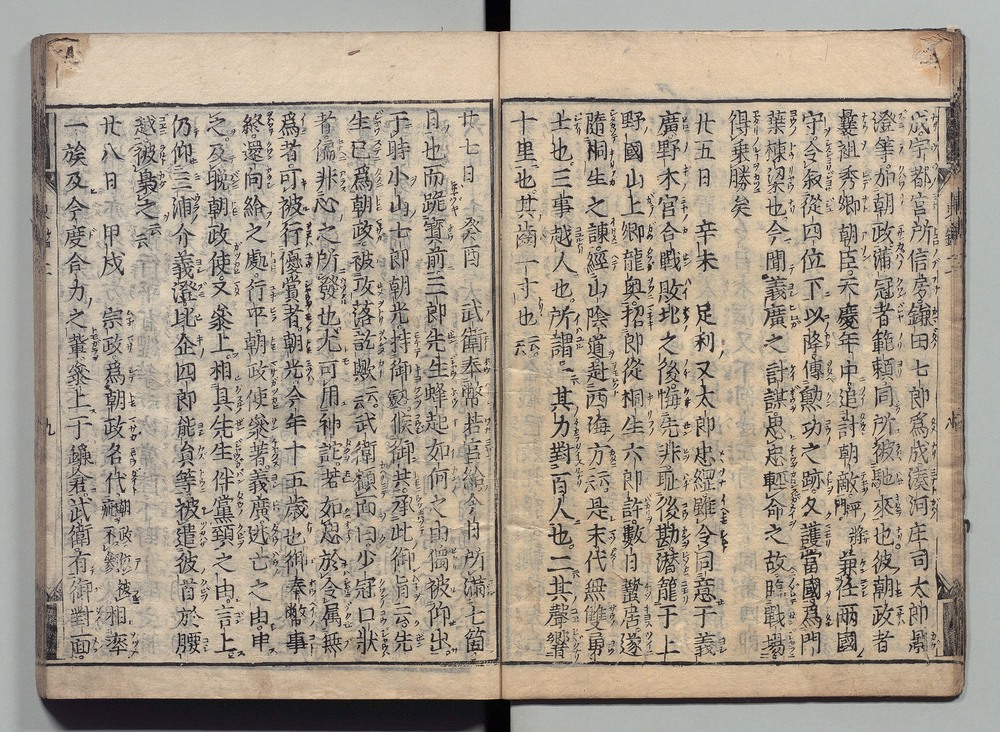 成宇都宮所信房鎌田七郎爲成湊河庄司太郎
澄等加朝政蒲冠者範頼同所被馳來也彼朝政者
曩祖秀郷朝臣天慶年中追討朝敵平將兼任兩國
守令叙從四位下以降傳勲功之跡久護當國爲門
葉棟梁也今聞義廣之計謀思忠輕命之故臨戰場
得乗勝矣
廿五日 辛未 足利又太郎忠綱雖令同意于義
廣野木宮合戰敗北之後悔先非耻後勘潜籠于上
野國山上郷龍奥招郎從桐生六郎許數日蟄居遂
隨桐生之諌經山陰道赴西海方云云是末代無雙勇
士也三事越人也所謂一其力對百人也二其聲響
十里也其齒一寸也云云
廿七日 癸酉 武衛奉幣若宮給今日所滿七箇
日也而跪寶前三郎先生蜂起如何之由獨被仰出
于時小山七郎朝光持御釼候御共承此御旨云先
生已爲朝政被攻落訖歟云云武衛顧面曰少冠口狀
者偏非心之所發也尤可用神託若如思於令属無
爲者可被行優賞者朝光今年十五歳也御奉幣事
終還向給之處行平朝政使參著義廣逃亡之由申
之及晩朝政使又參上相具先生伴黨頸之由言上
仍仰三浦介義澄比企四郎能員等被遣彼首於腰
越被梟之云云
廿八日 甲戌 宗政爲朝政名代朝政被疵不參人相率
一族及今度合力之輩參上于鎌倉武衛有御對面
九